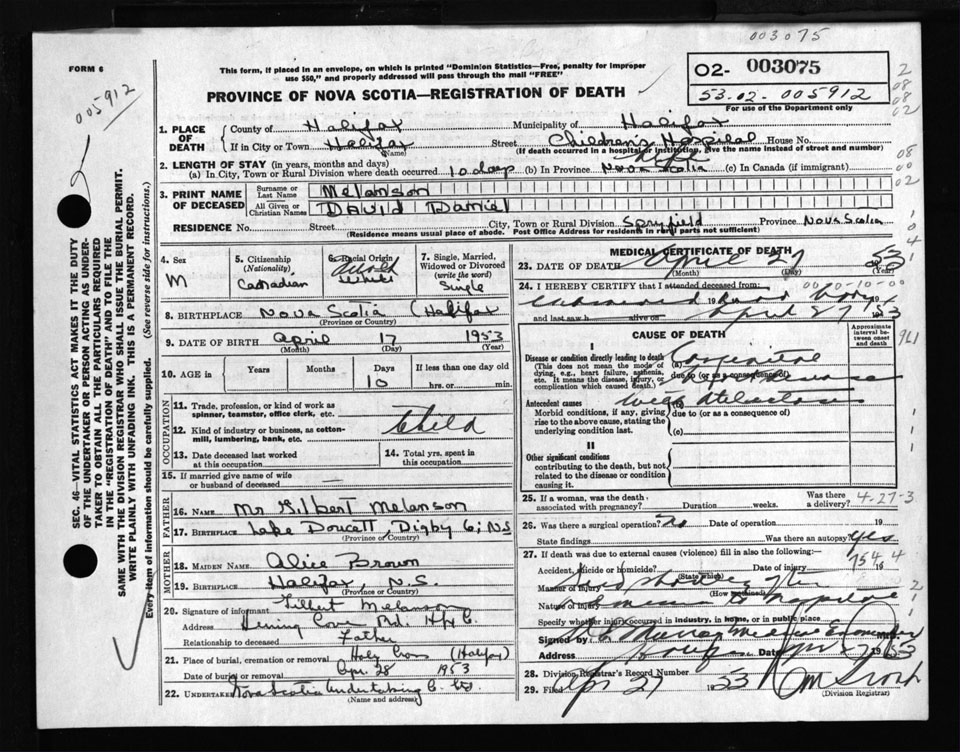 003075
FORM 6
This form, if placed in an envelope, on which is printed "Dominion Statistics—Free, penalty for improper
use $50," and properly addressed will pass through the mail "FREE"
O2- 003075
53-02-005912
For use of the Department only
PROVINCE OF NOVA SCOTIA—REGISTRATION OF DEATH
005912
2
08
08
02
1. PLACE OF DEATH
County of Halifax Municipality of Halifax
If in City or Town Halifax Street Childrens Hospital House No.
(Name) (If death occurred in a hospital or institution, give the name instead of street and number)
2. LENGTH OF STAY (in years, months and days)
(a) In City, Town or Rural Division where death occurred 10 days (b) In Province Nova Scotia (c) In Canada (if immigrant)
08
00
02
3. PRINT NAME OF DECEASED
Surname or Last Name Melanson
All Given or Christian Names David Daniel
RESIDENCE No. Street City, Town or Rural Division Spryfield Province Nova Scotia
(Residence means usual place of abode. Post Office Address for residents in rural parts not sufficient)
SEC. 46—VITAL STATISTICS ACT MAKES IT THE DUTY
OF THE UNDERTAKER OR PERSON ACTING AS UNDER-
TAKER TO OBTAIN ALL THE PARTICULARS REQUIRED
IN THE "REGISTRATION OF DEATH" AND TO FILE THE
SAME WITH THE DIVISION REGISTRAR WHO SHALL ISSUE THE BURIAL PERMIT.
WRITE PLAINLY WITH UNFADING INK. THIS IS A PERMANENT RECORD.
Every item of information should be carefully supplied. (See reverse side for instructions.)
4. Sex
M
5. Citizenship
(Nationality)
Canadian
6. Racial Origin
White
7. Single, Married,
Widowed or Divorced
(write the word)
Single
8. BIRTHPLACE Nova Scotia (Halifax)
(Province or Country)
9. DATE OF BIRTH April 17 1953
(Month) (Day) (Year)
10. AGE in
Years Months Days If less than one day old
10 hrs. or min.
OCCUPATION
11. Trade, profession, or kind of work as
spinner, teamster, office clerk, etc.
12. Kind of industry or business, as cotton-
mill, lumbering, bank, etc.
Child
13. Date deceased last worked
at this occupation
14. Total yrs. spent in
this occupation
15. If married give name of wife
or husband of deceased —
FATHER
16. NAME Mr Gilbert Melanson
17. BIRTHPLACE Lake Doucett, Digby Co; NS
(Province or Country)
MOTHER
18. MAIDEN NAME Alice Brown
19. BIRTHPLACE Halifax, N.S.
(Province or Country)
20. Signature of informant Gilbert Melanson
Address Herring Cove Rd. Hfx Co.
Relationship to deceased Father
21. Place of burial, cremation or removal Holy Cross (Halifax)
Date of burial or removal Apr. 28 1953
22. UNDERTAKER Nova Scotia Undertaking Co. Ltd.
(Name and address)
MEDICAL CERTIFICATE OF DEATH
23. DATE OF DEATH April 27 53
(Month) (Day) (Year)
24. I HEREBY CERTIFY that I attended deceased from:
00-10-00
and last saw h alive on April 27 1953
CAUSE OF DEATH
Approximate
interval be-
tween onset
and death
I
Disease or condition directly leading to death
(This does not mean the mode of
dying, e.g., heart failure, asthenia,
etc. It means the disease, injury, or
complication which caused death.)
(a) Congenital
due to (or as a consequence of)
Antecedent causes
Morbid conditions, if any, giving
rise to the above cause, stating the
underlying condition last.
with Atelectasis
due to (or as a consequence of)
(c)
II
Other significant conditions
contributing to the death, but not
related to the disease or condition
causing it.
25. If a woman, was the death
associated with pregnancy? Duration weeks. Was there
a delivery?
4-27-3
26. Was there a surgical operation? No Date of operation 19
State findings Was there an autopsy? Yes
27. If death was due to external causes (violence) fill in also the following:
7544
Accident, suicide or homicide? Date of injury 19
(State which)
Manner of injury
(How sustained)
Nature of injury
Specify whether injury occurred in industry, in home, or in public place
Signed by Murray Medical Examiner
Address Date 1953
28. Division Registrar's Record Number
29. Filed Apr 27 1953
(Division Registrar)